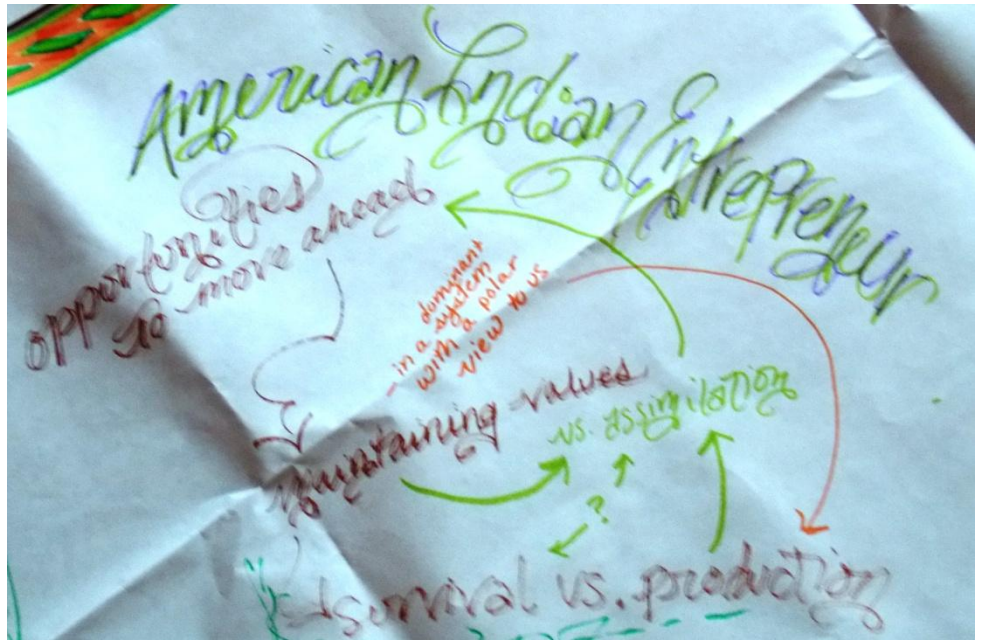 American Indian Entrepreneur
opportunities
to move ahead
in a dominant
system
with a polar
view to us
maintaining values
vs. assimilation
?
survival vs. production